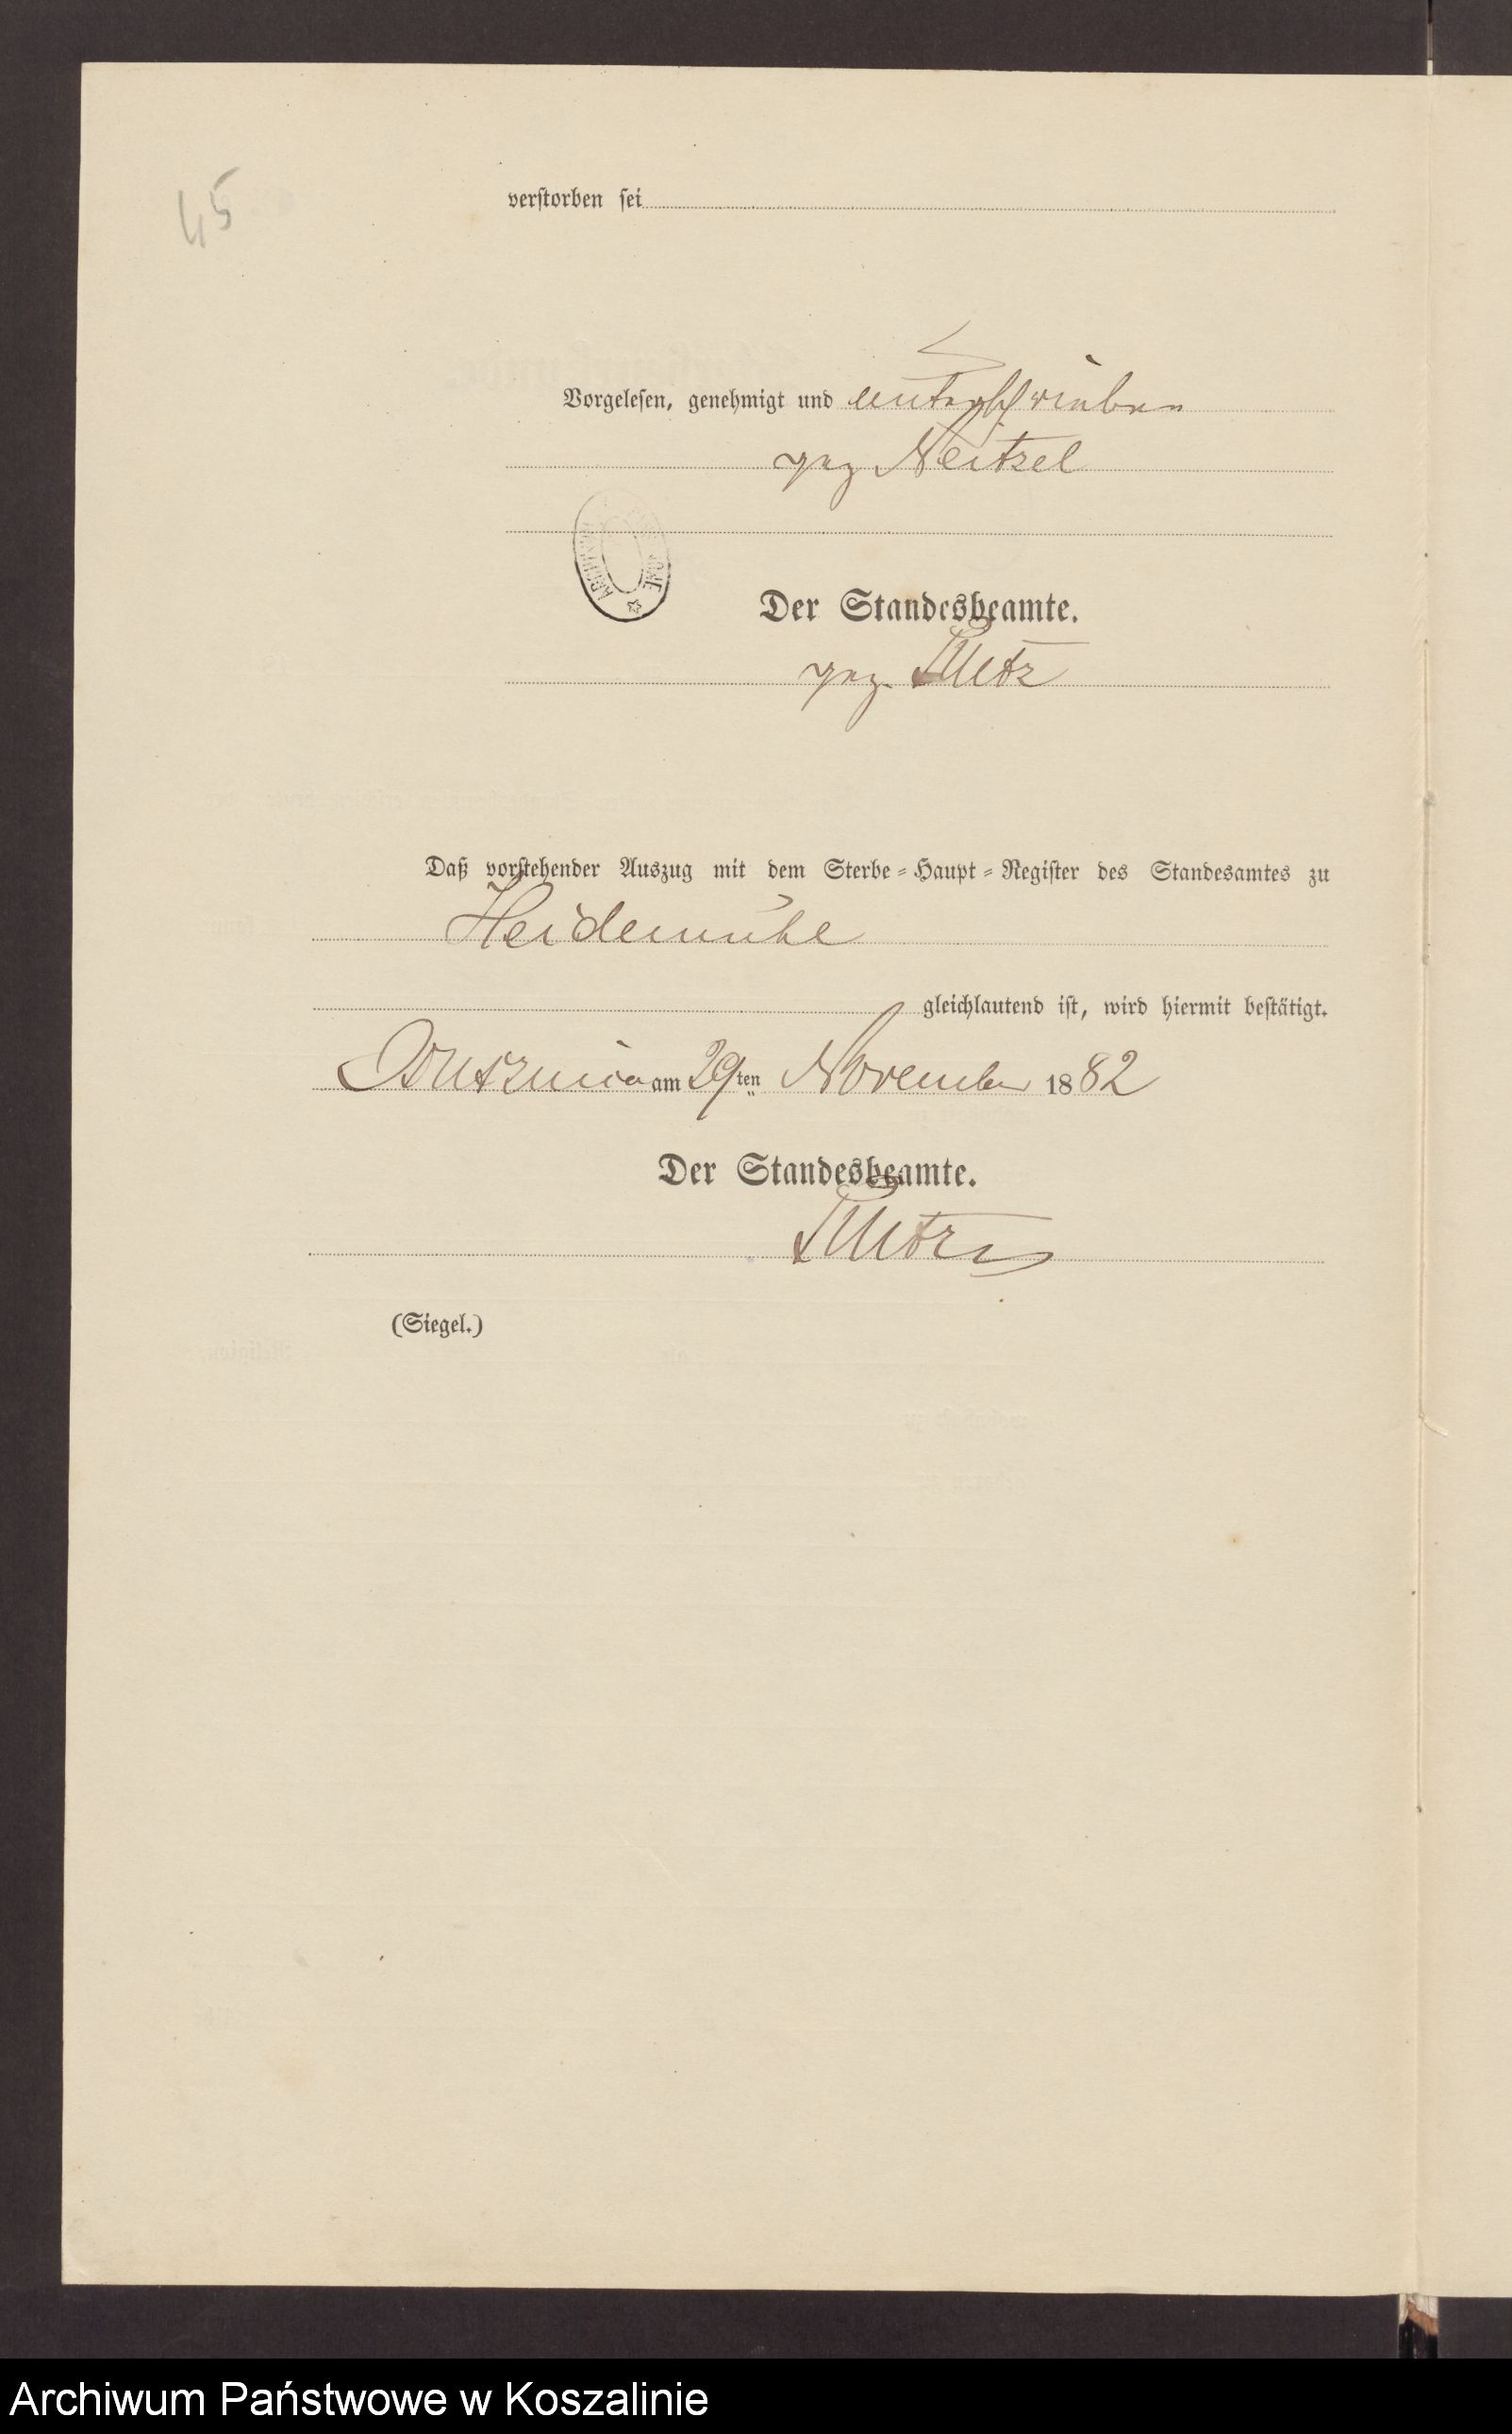 45
verstorben sei
Vorgelesen, genehmigt und unterschrieben
gez Neitzel
ARCHIWUM
Der Standesbeamte.
gez. Metz
Daß vorstehender Auszug mit dem Sterbe-Haupt-Register des Standesamtes zu
Heidemühle
gleichlautend ist, wird hiermit bestätigt.
am 29ten November 1882
Der Standesbeamte.
Metz
(Siegel.)
Archiwum Państwowe w Koszalinie